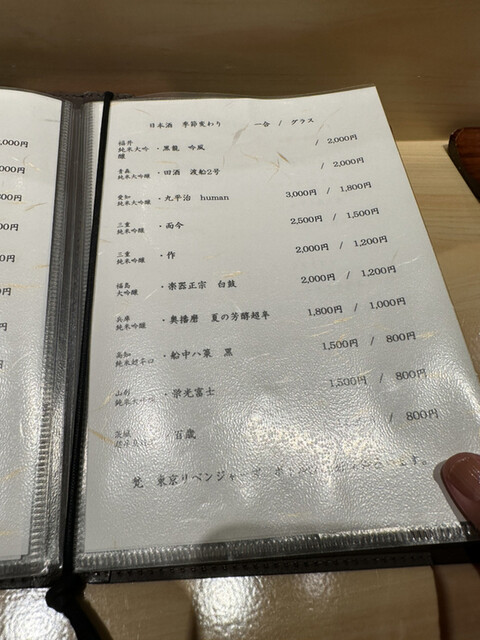 日本酒 季節変わり 一合 / グラス
福井
純米大吟醸 ・黒龍 吟風 / 2,000円
青森
純米大吟醸 ・田酒 渡船2号 / 2,000円
愛知
純米大吟醸 ・九平治 human 3,000円 / 1,800円
三重
純米吟醸 ・而今 2,500円 / 1,500円
三重
純米吟醸 ・作 2,000円 / 1,200円
福島
大吟醸 ・楽器正宗 白鼓 2,000円 / 1,200円
兵庫
純米吟醸 ・奥播磨 夏の芳醇超辛 1,800円 / 1,000円
高知
純米超辛口 ・船中八策 黒 1,500円 / 800円
山形
純米大吟醸 ・栄光冨士 1,500円 / 800円
茨城
・百歳 / 800円
梵 東京リベンジャーズ ます。
,000円
円
800円
00円
00円
0円
0円
円
円